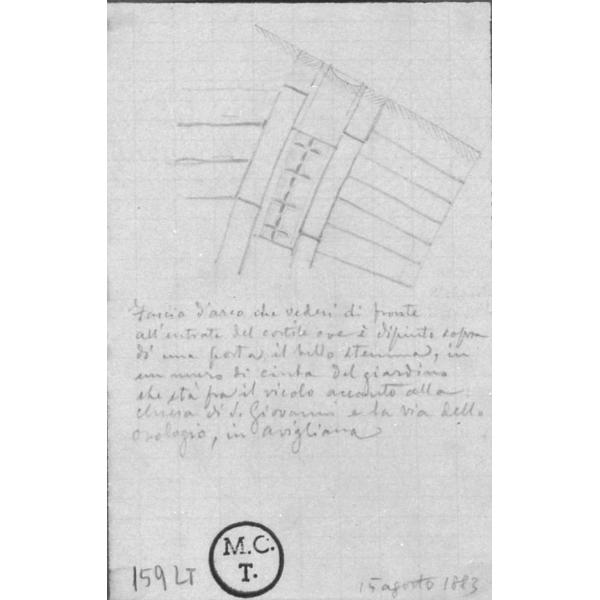 Fascia d'arco che vedesi di fronte
all'entrata del cortile ove è dipinto sopra
di una porta il bello stemma, in
un muro di cinta del giardino
che stà fra il vicolo accanto alla
chiesa di S. Giovanni e la via dello
orologio, in Avigliana
159 LT
M.C.
T.
15 agosto 1883